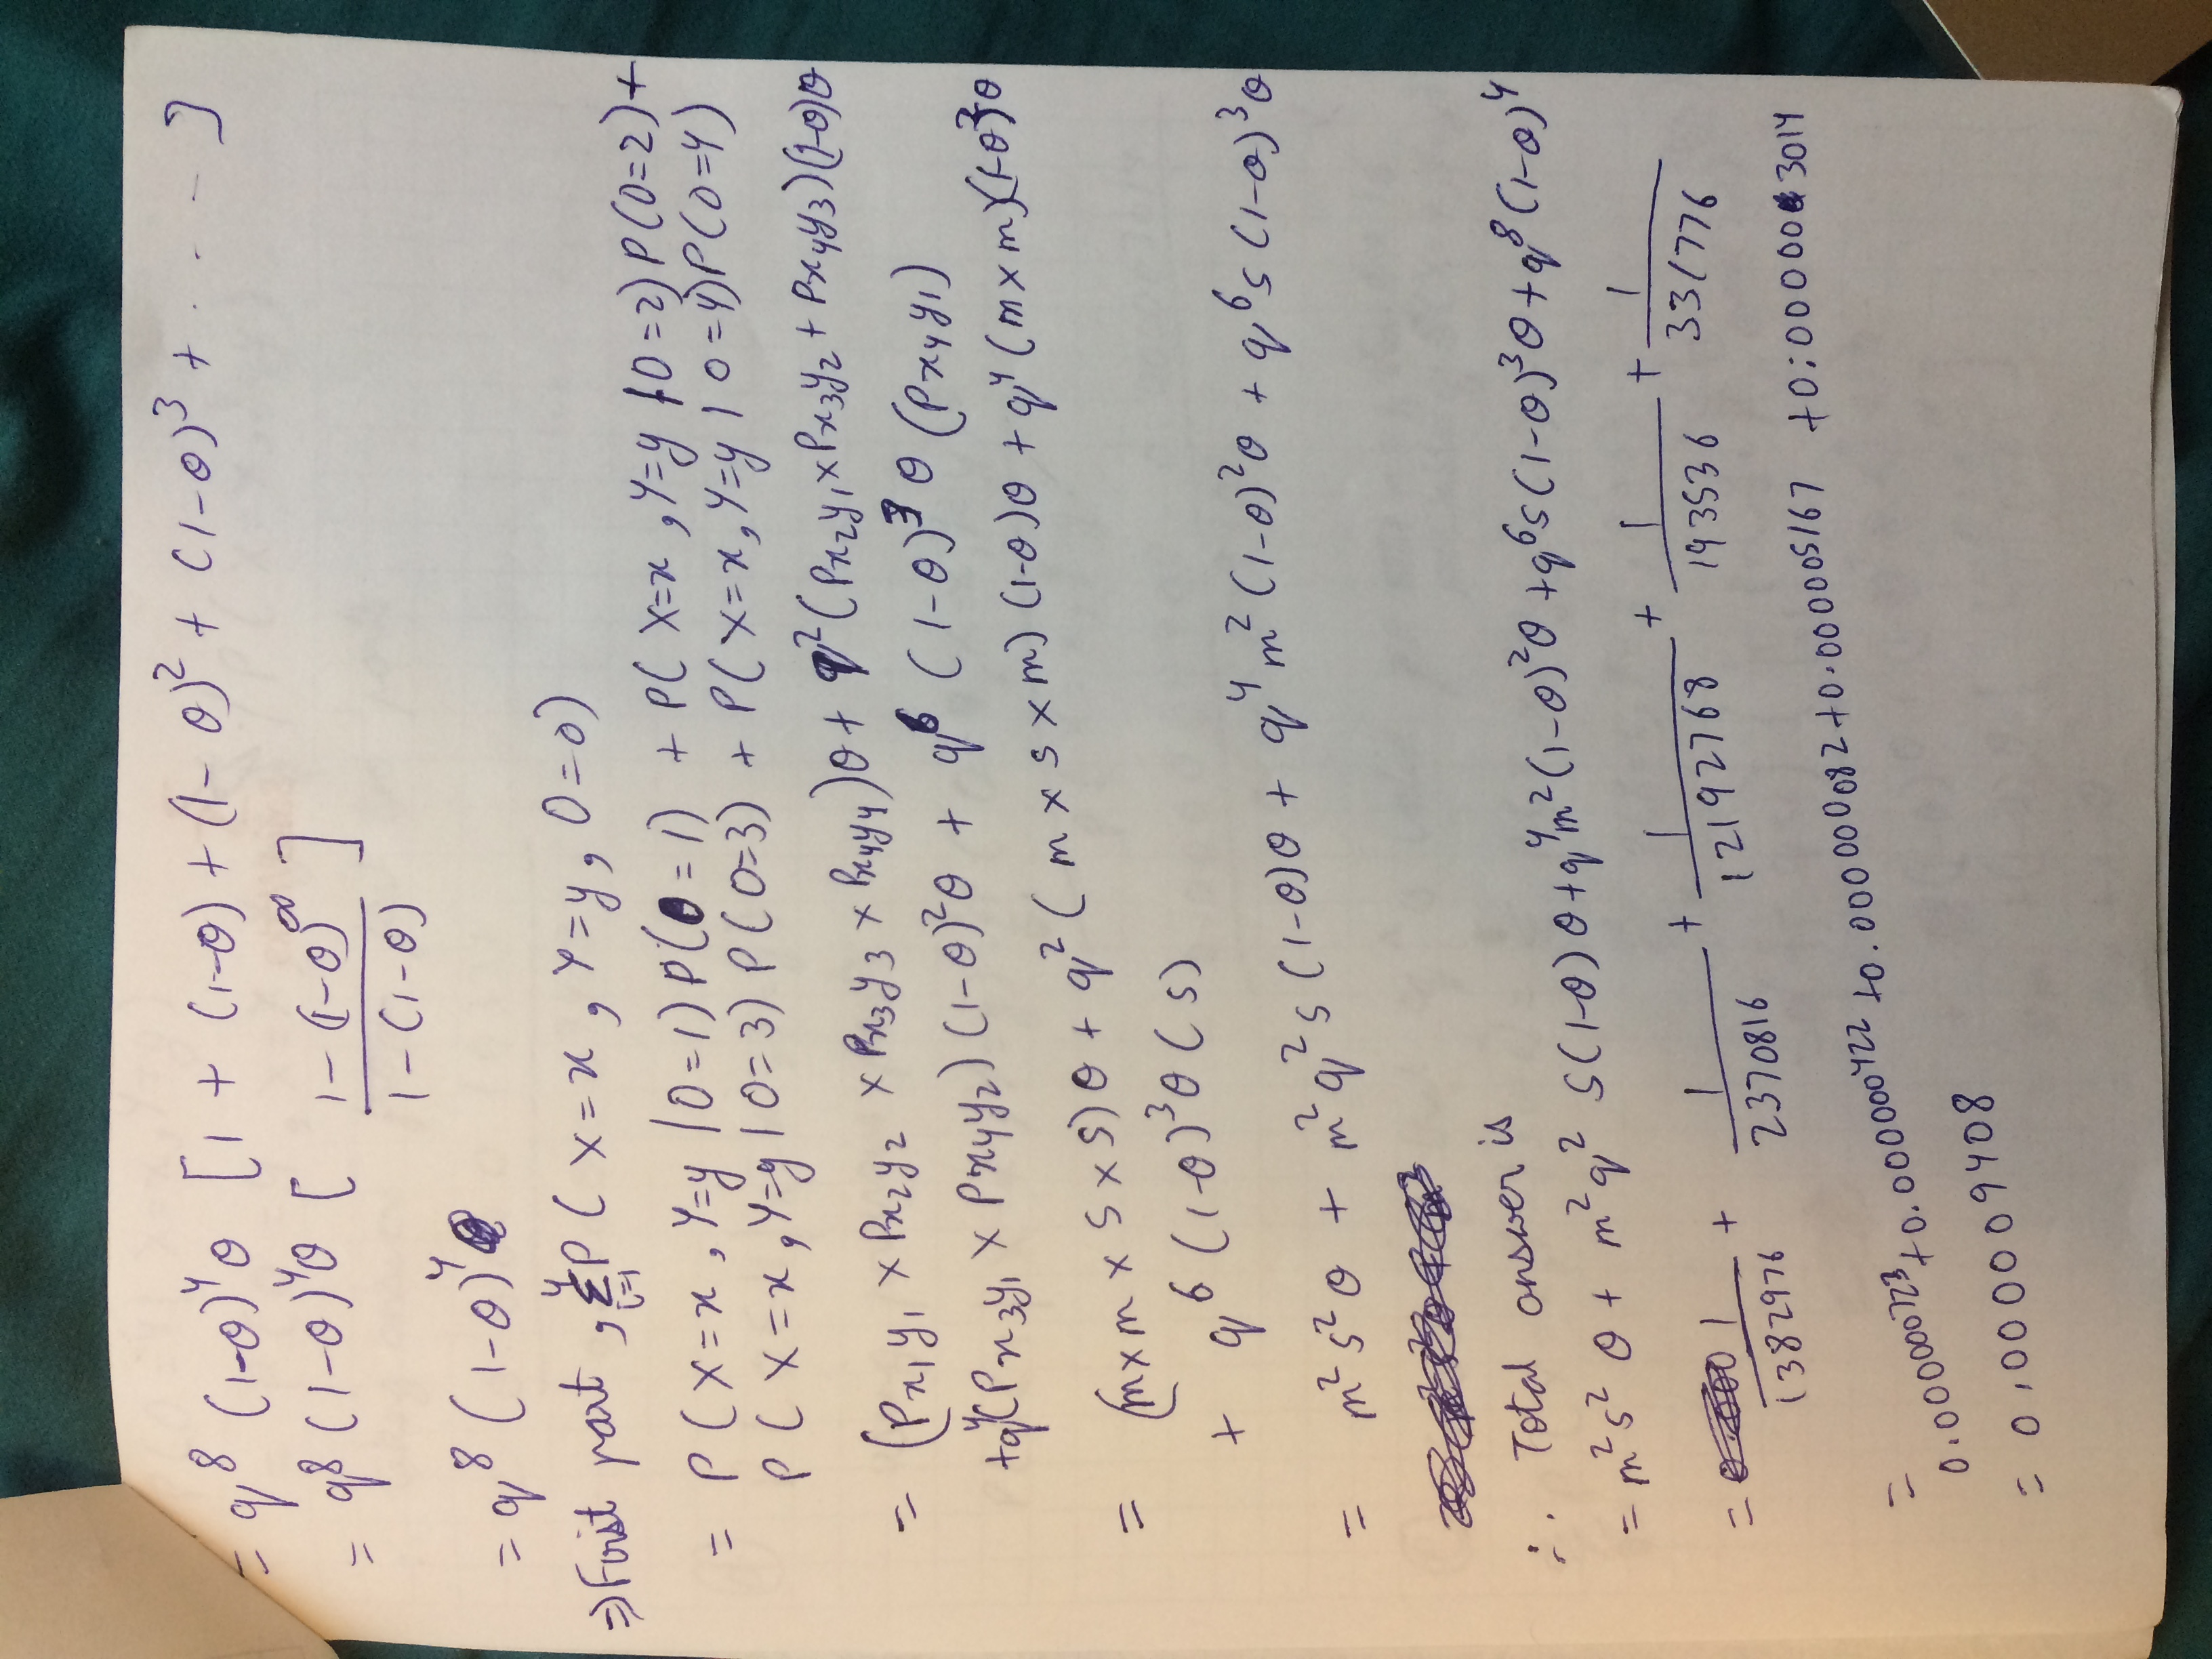 = q^8 (1-θ)^4 θ [1 + (1-θ) + (1-θ)^2 + (1-θ)^3 + ....]
= q^8 (1-θ)^4 θ [ (1-(1-θ)^∞) / (1-(1-θ)) ]
= q^8 (1-θ)^4
⇒ First part, Σ_{i=1}^{4} P(X=x, Y=y, O=o)
= P(X=x, Y=y | O=1) P(O=1) + P(X=x, Y=y | O=2) P(O=2) +
P(X=x, Y=y | O=3) P(O=3) + P(X=x, Y=y | O=4) P(O=4)
= (Px_1y_1 × Px_2y_2 × Px_3y_3 × Px_4y_4)θ + q^2 (Px_2y_1 × Px_3y_2 + Px_4y_3)(1-θ)θ
+ q^4 (Px_3y_1 × Px_4y_2) (1-θ)^2 θ + q^6 (1-θ)^3 θ (Px_4y_1)
= (m×m × s×s)θ + q^2 (m × s × m) (1-θ)θ + q^4 (m×m)(1-θ)^3 θ
+ q^6 (1-θ)^3 θ (s)
= m^2 s^2 θ + m^2 q^2 s (1-θ)θ + q^4 m^2 (1-θ)^2 θ + q^6 s (1-θ)^3 θ
∴ Total answer is
= m^2 s^2 θ + m^2 q^2 s(1-θ)θ + q^4 m^2 (1-θ)^2 θ + q^6 s(1-θ)^3 θ + q^8 (1-θ)^4
= 1/1382976 + 1/2370816 + 1/12192768 + 1/193536 + 1/331776
= 0.000000723 + 0.000000422 + 0.000000082 + 0.000005167 + 0.000003014
= 0.000009408